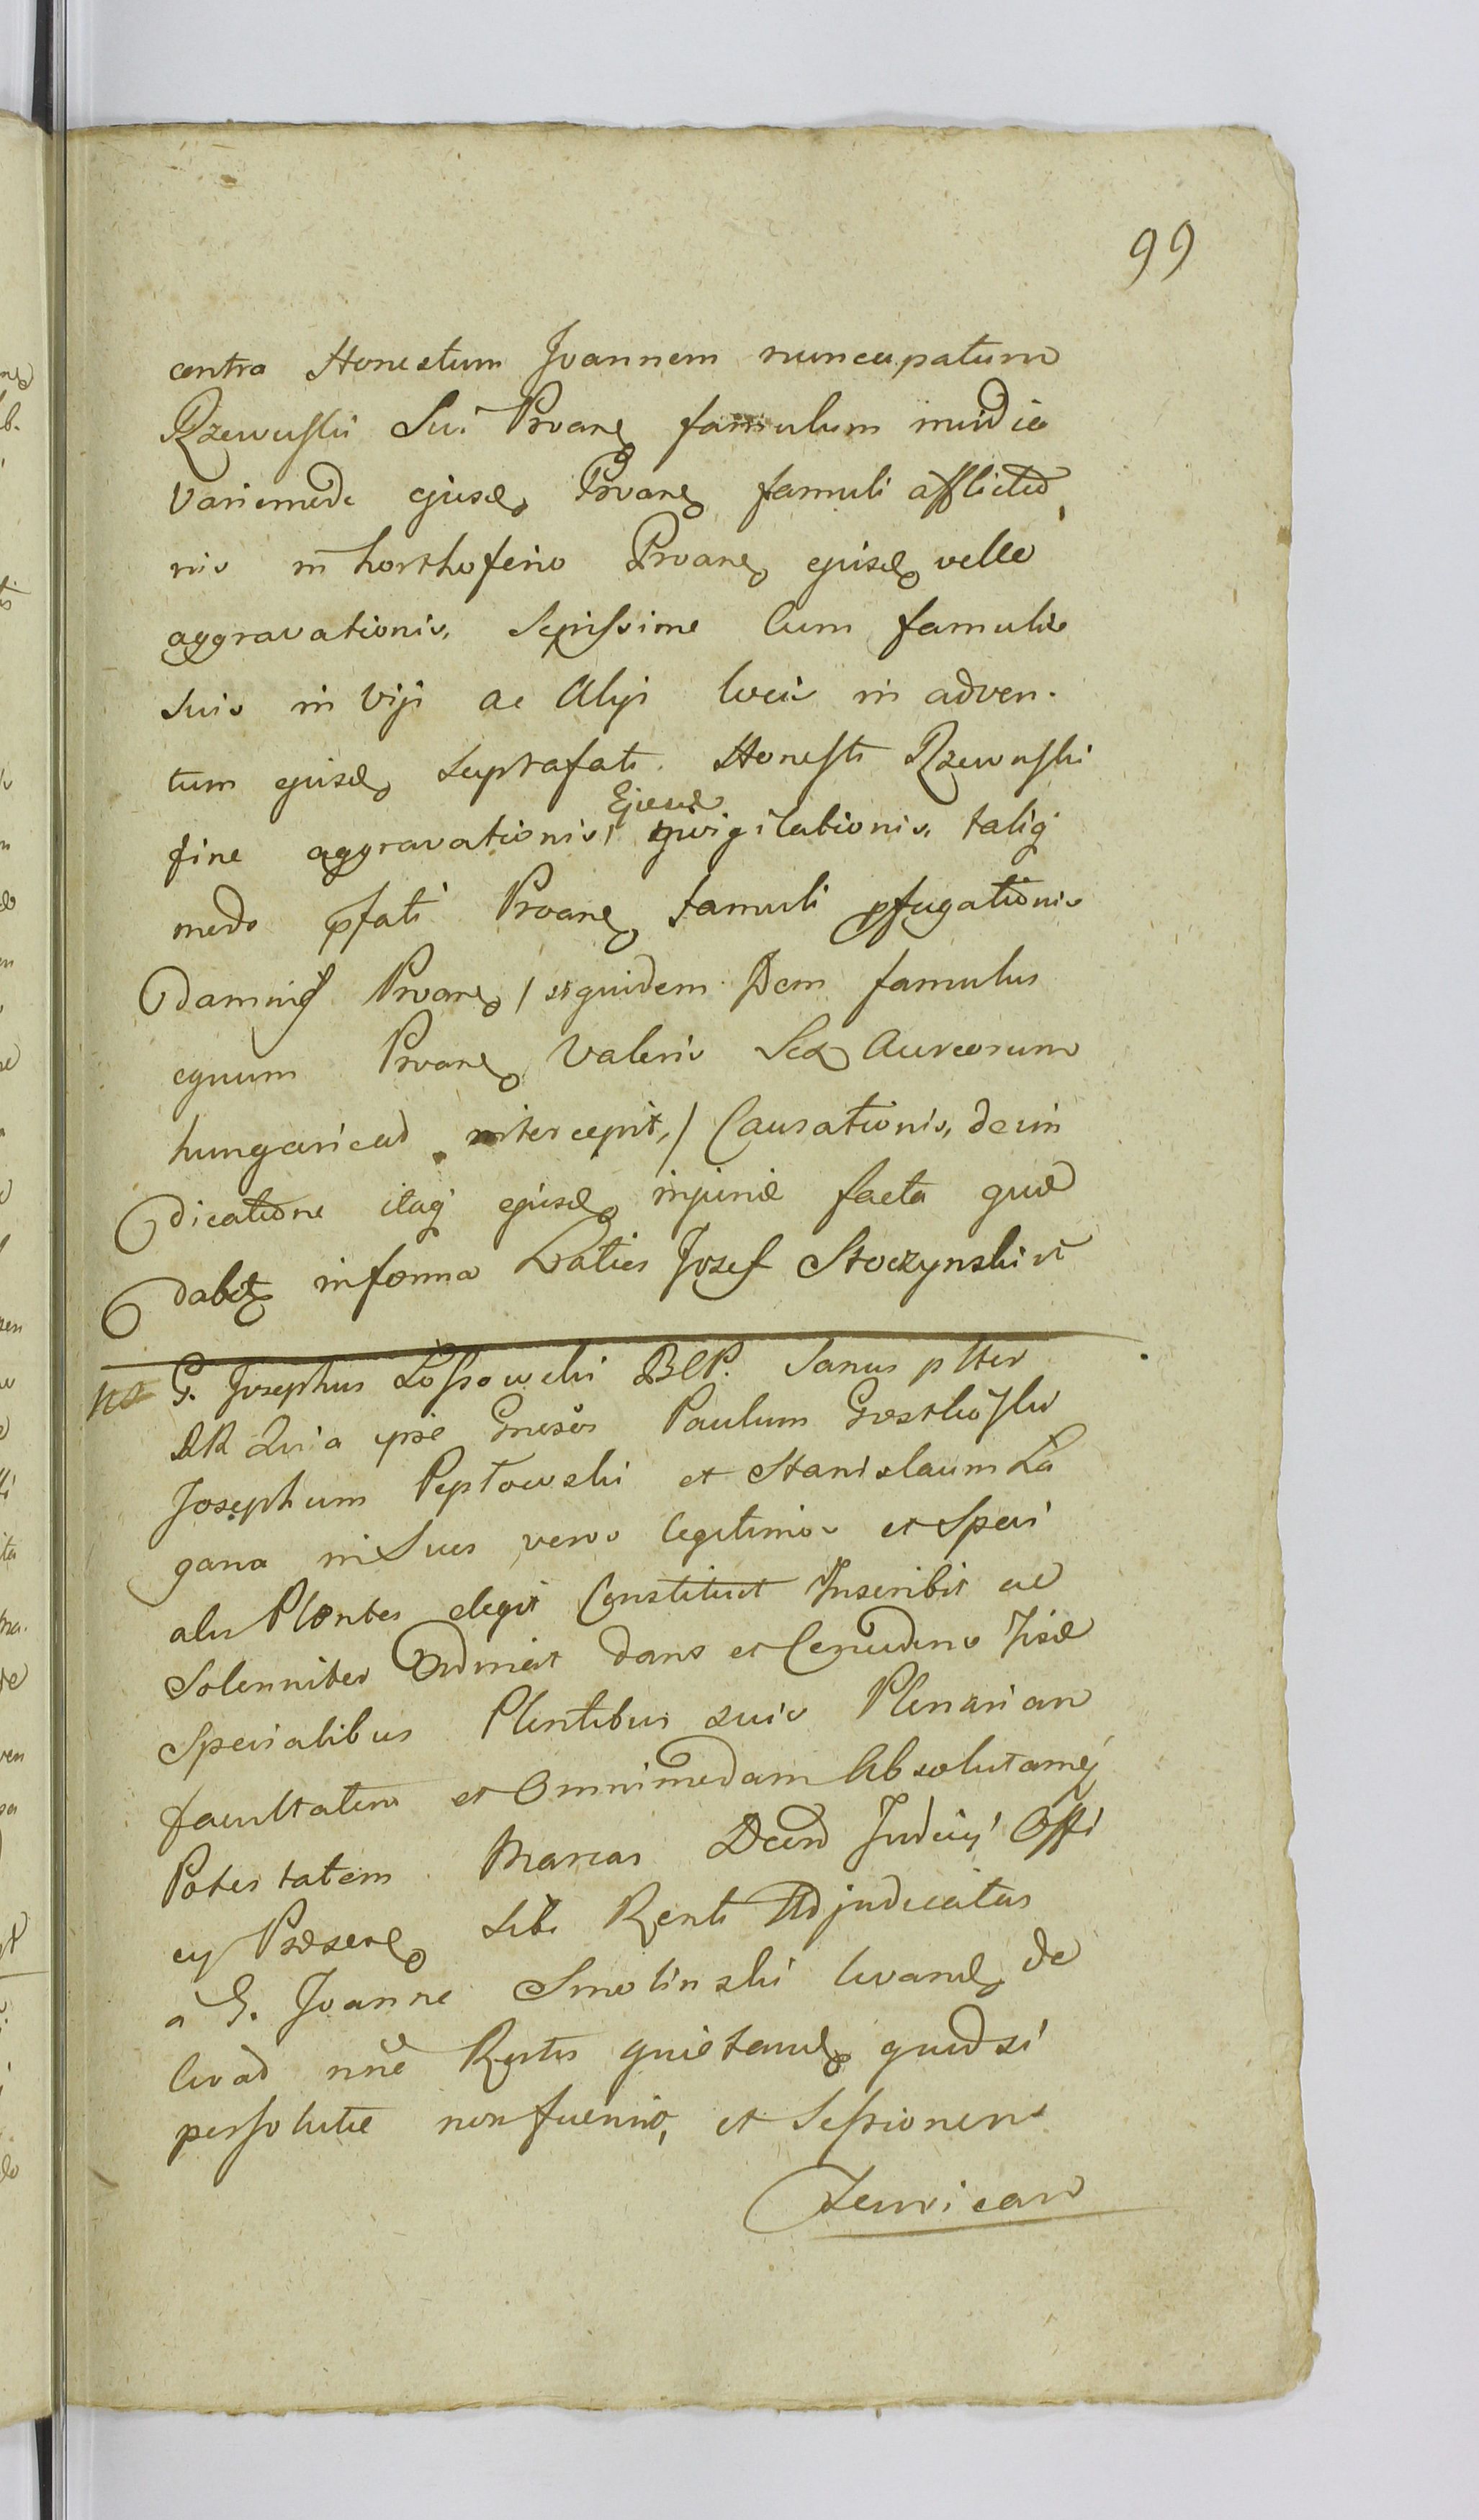 99
contra Honestum Joannem nuncupatum
Rzewuski Sui Proane famulum invidia
Variemode ejusd Proane famuli afflictio
nis in horthoferio Proane ejusd velle
aggravationis, Sepissime Cum famulis
suis in Viji ac Alyi locis in adven.
tum ejusd suprafati Honesti Rzewuski
Ejusd
fine aggravationis, invigilationis, taliq
modo pfati Proane famuli pfugationis
damniq Proane / siquidem Dem famulus
equum Proane Valeris Sex Aureorum
hungarical intercepit, / Causationis, de in
dicatione itaq ejusd injuriæ facta quæ
dabit in forma Laties Josef Stoczynski
G. Josephus Lossowski BCP. Sanus
RR Quia ipse Gnesos Paulum
Josephum Peptowski et Stanislaum La
gana in Suos veros legitimos et Speci
ales Plentes elegit Constituit Inscribit ac
Solenniter Ordinat dans et Conudens
Specialibus Plentibus suis Plenariam
facultatem et Omnimodam Absolutamq
Potestatem Marcas Decem Judicij Offi
cij Præsene sibi Renti Adjudicatas
a G. Joanne Smolinski levand de
levad nne Rentis quietand quod si
persolutæ non fuerint, et Sessionem